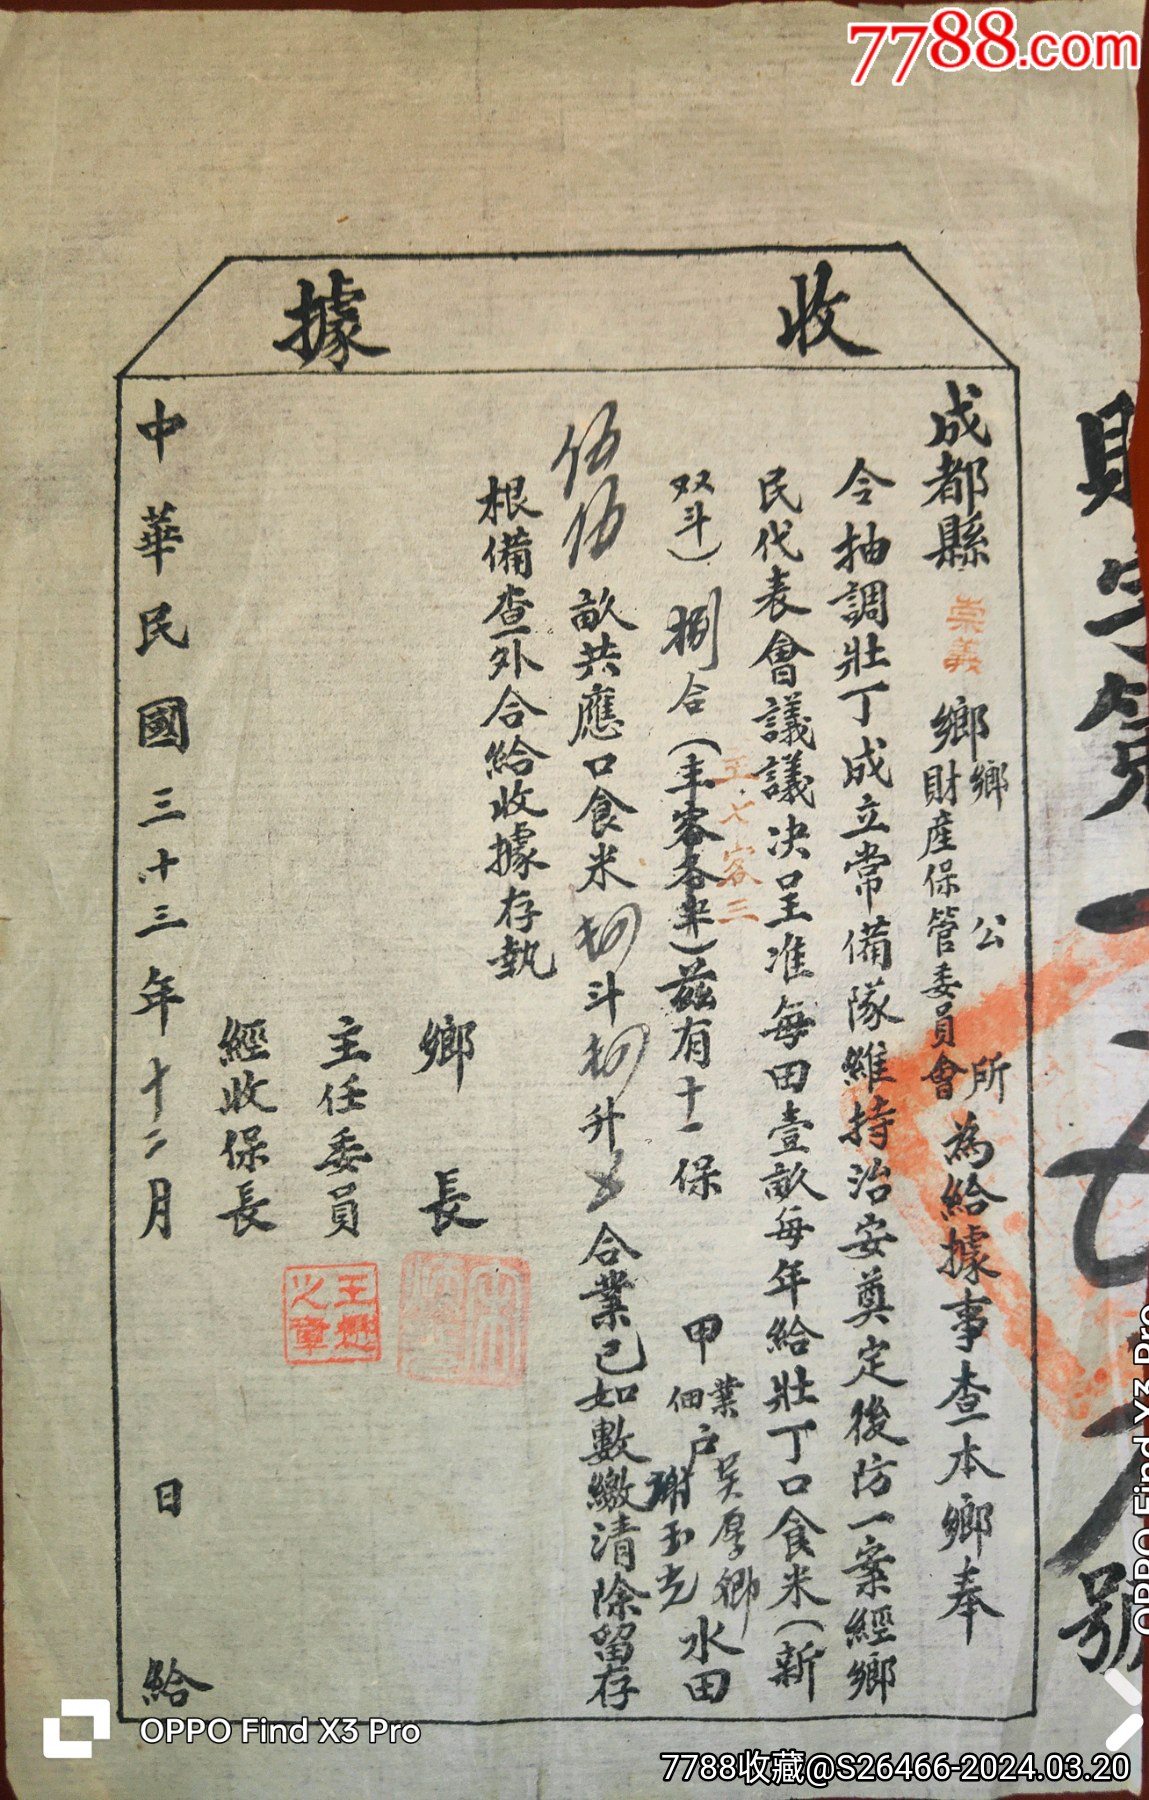 7788.com
收據
成都縣崇義鄉鄉公所財產保管委員會為給據事查本鄉奉
令抽調壯丁成立常備隊維持治安奠定後防一案經鄉
民代表會議議决呈准每田壹畝每年給壯丁口食米(新
双斗)捌合(主客各半)茲有十一保 甲業佃户吴厚卿謝玉光水田
主七客三
伍伍畝共應口食米 斗 升 合業已如數繳清除留存
根備查外合給收據存執
鄉 長
主任委員
王懋之章
經收保長
中華民國三十三年十二月 日給
財字第 號
OPPO Find X3 Pro
OPPO Find X3 Pro
7788收藏@S26466-2024.03.20